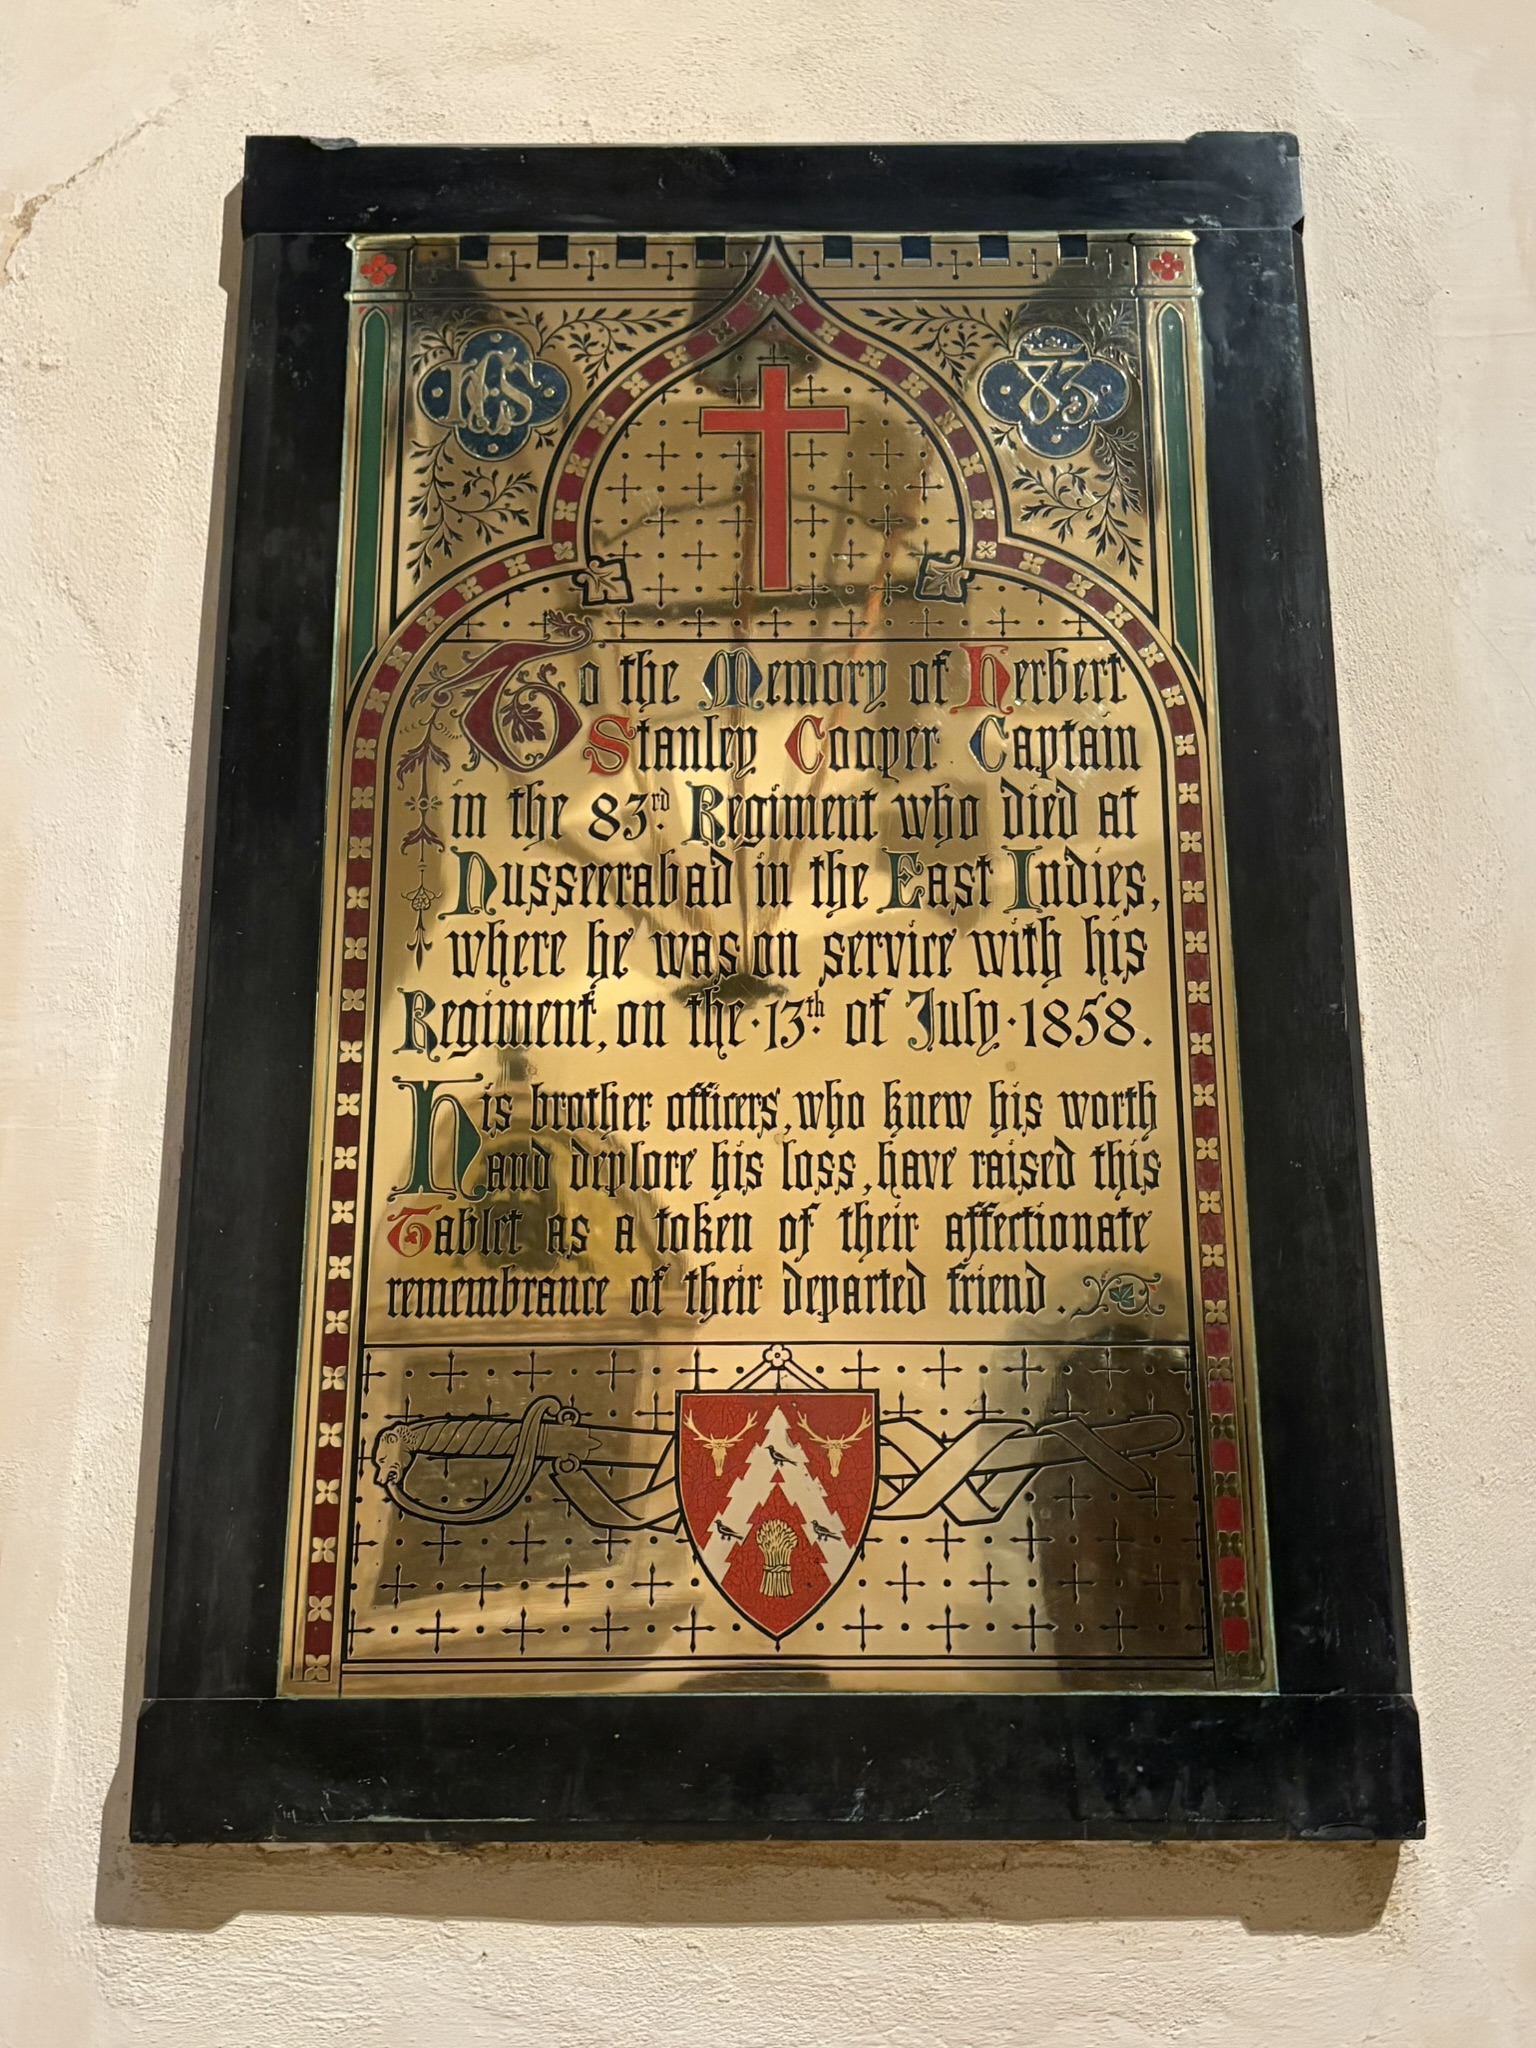 HCS
83
To the Memory of Herbert
Stanley Cooper Captain
in the 83rd. Regiment who died at
Nusseerabad in the East Indies,
where he was on service with his
Regiment, on the · 13th. of July · 1858.
His brother officers, who knew his worth
and deplore his loss, have raised this
Tablet as a token of their affectionate
remembrance of their departed friend.